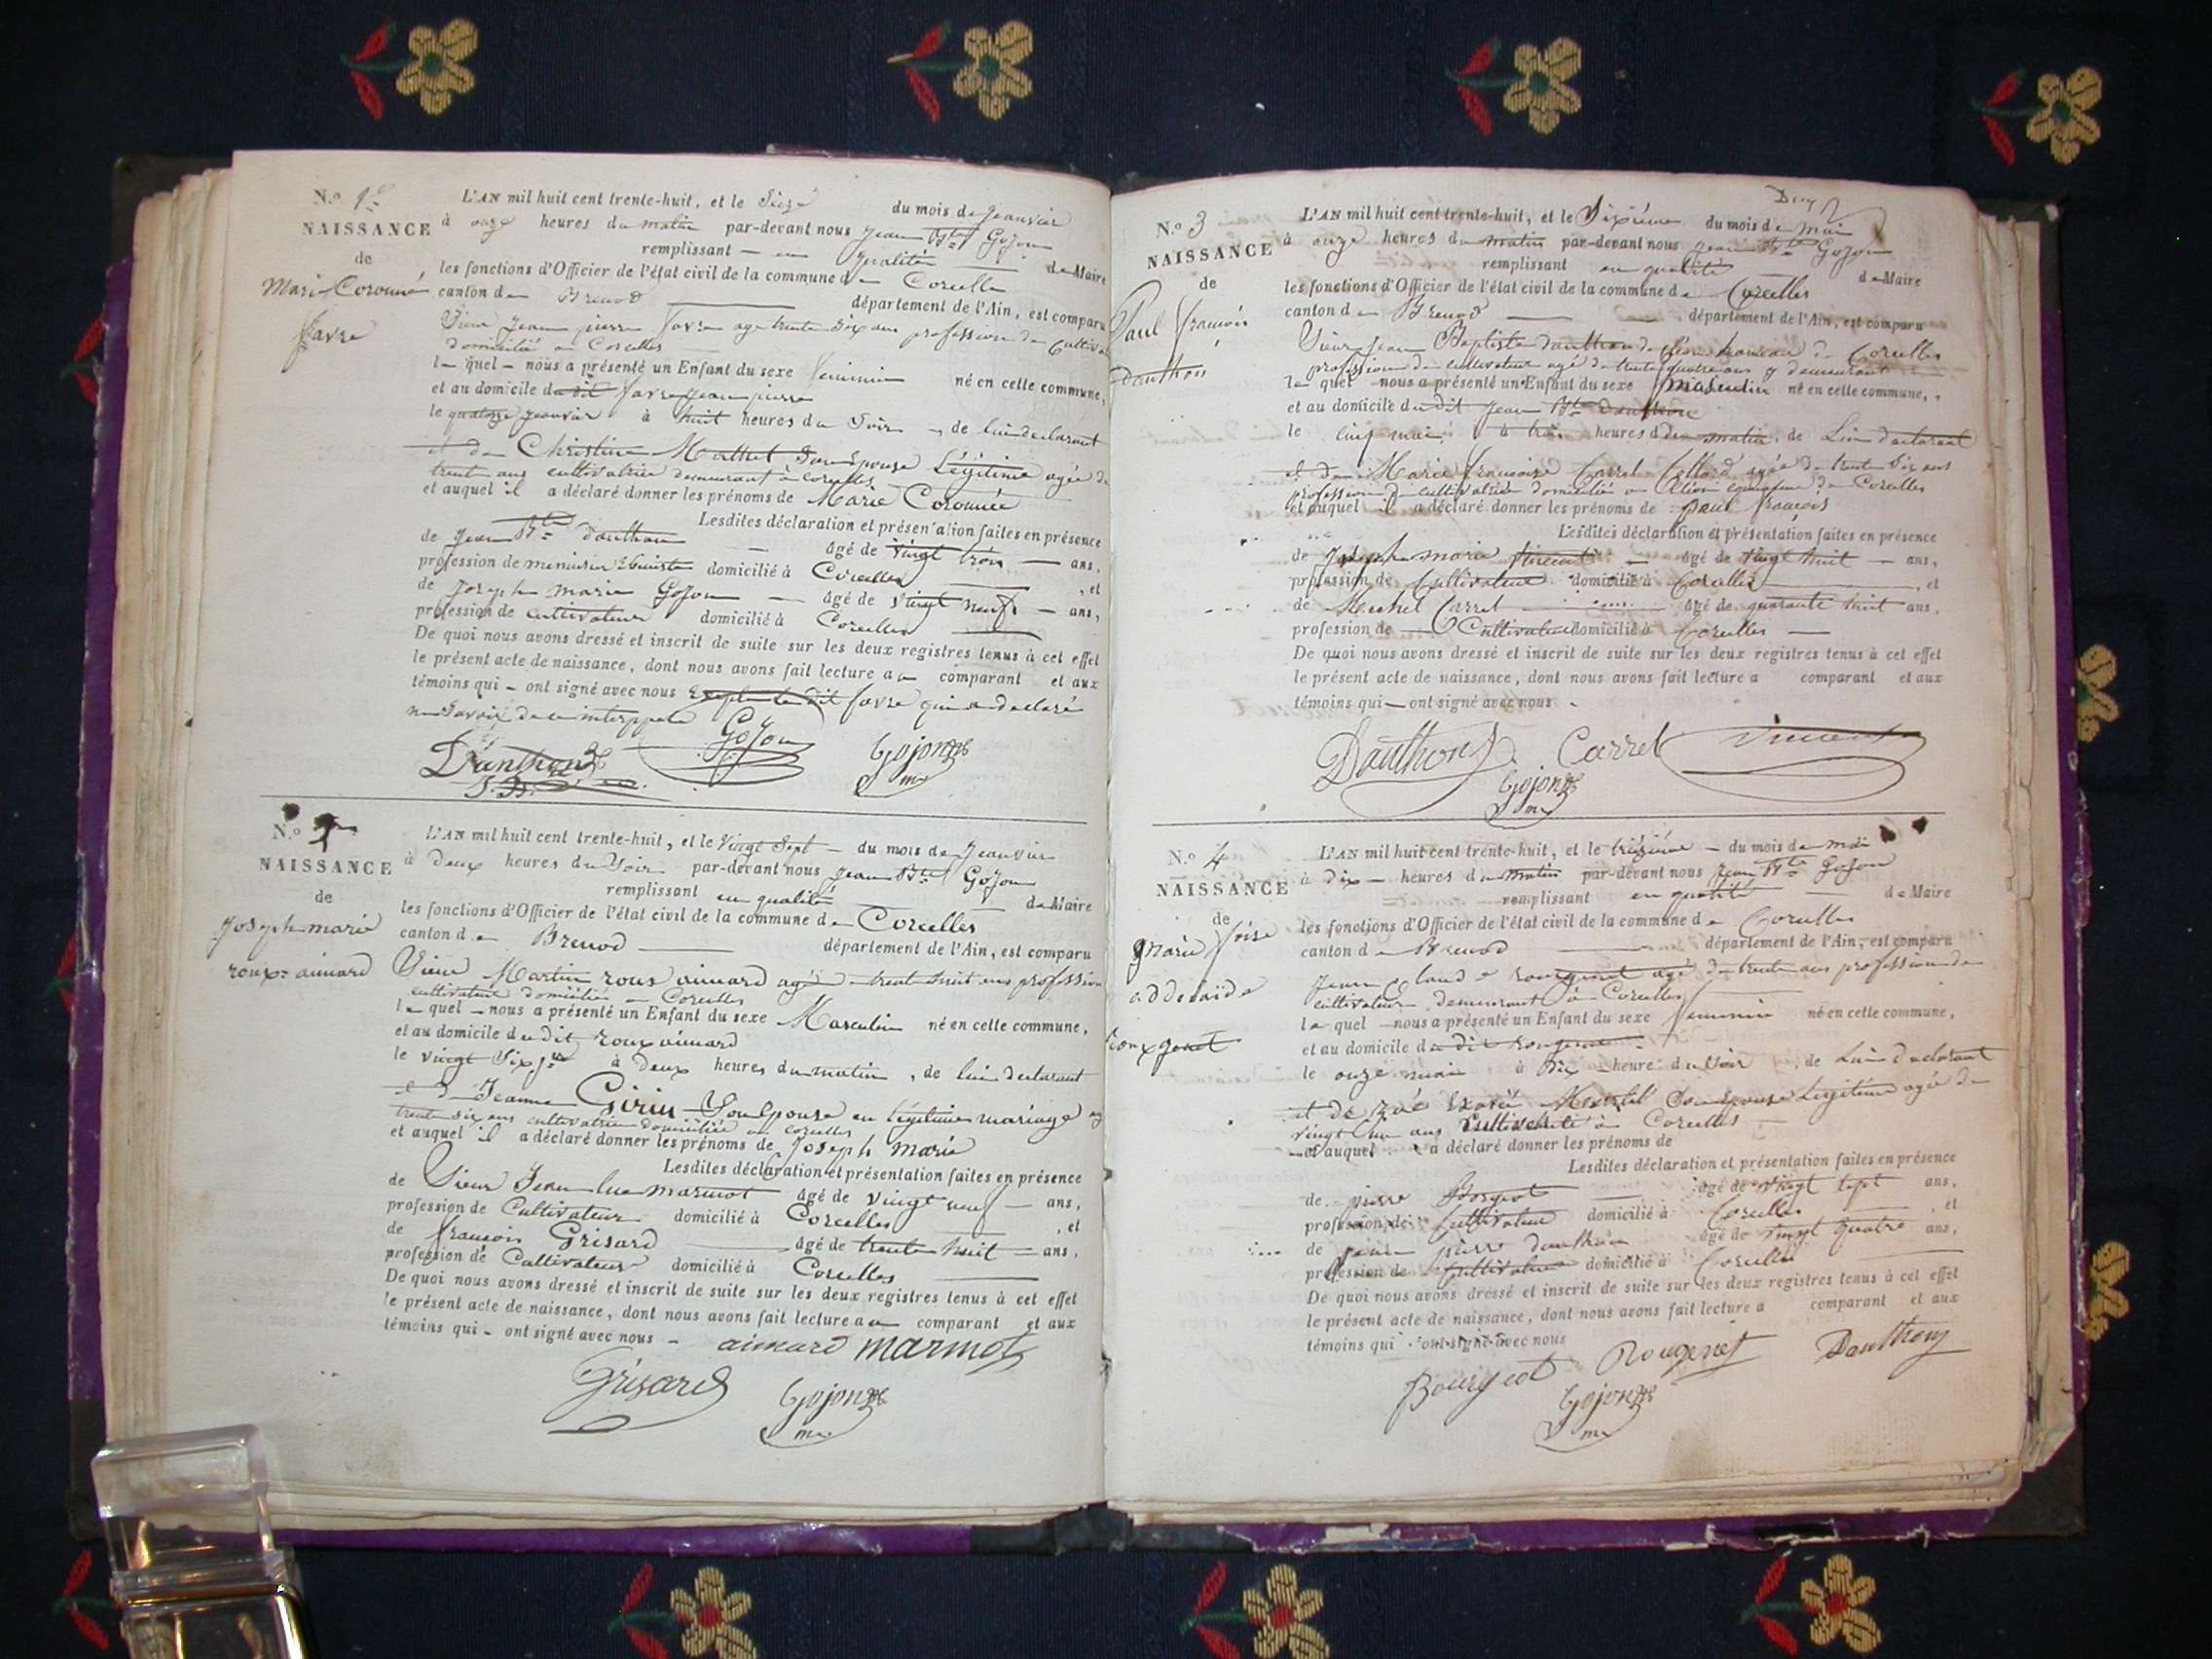 N.o 1er
NAISSANCE
de
Mari Coronné
favre
L'AN mil huit cent trente-huit, et le Seize du mois de Jeanvier
à onze heures du matin par-devant nous Jean Bte Gojon
remplissant en qualité de Maire
les fonctions d'Officier de l'état civil de la commune de Corcelle
canton de Brenod département de l'Ain, est comparu
Sieur Jean pierre favre age trente Six ans profession de Cultiva
domicilié a Corcelles
le quel nous a présenté un Enfant du sexe feminin né en cette commune,
et au domicile du dit favre Jean pierre
le quatorze jeanvier à huit heures du Soir, de lui declarant
et de Christine Mathet Son Epouse Légitime agée de
trent ans cultivatrice demeurant à corcelles
et auquel il a déclaré donner les prénoms de Marie Coronnée
Lesdites déclaration et présentation faites en présence
de Jean Bte Dauthon âgé de vingt trois ans,
profession de menuisier Ebeniste domicilié à Corcelles, et
de Joseph marie Gojon âgé de vingt neuf ans,
profession de cultivateur domicilié à Corcelles
De quoi nous avons dressé et inscrit de suite sur les deux registres tenus à cet effet
le présent acte de naissance, dont nous avons fait lecture au comparant et aux
témoins qui ont signé avec nous Excepte le dit favre qui a declaré
ne Savoir de ce interppelé
Danthon Gojon Gojon
J.B. me
N.o
NAISSANCE
de
Joseph marie
roux aimard
L'AN mil huit cent trente-huit, et le Vingt Sept du mois de Jeanvier
à deux heures du Soir par-devant nous Jean Bte Gojon
remplissant en qualité de Maire
les fonctions d'Officier de l'état civil de la commune de Corcelles
canton de Brenod département de l'Ain, est comparu
Sieur Martin roux aimard agé trent huit ans profession
cultivateur domicilié a Corcelles
le quel nous a présenté un Enfant du sexe Masculin né en cette commune,
et au domicile du dit roux aimard
le vingt Six à deux heures du matin, de lui declarant
et d Jeanne Girin Son Epouse en légitime mariage ag
trente six ans cultivatrice domiciliée a corcelles
et auquel il a déclaré donner les prénoms de Joseph marie
Lesdites déclaration et présentation faites en présence
de Sieur Jean luc marmot âgé de vingt neuf ans,
profession de Cultivateur domicilié à Corcelles, et
de francois Grisard âgé de trente huit ans,
profession de Cultivateur domicilié à Corcelles
De quoi nous avons dressé et inscrit de suite sur les deux registres tenus à cet effet
le présent acte de naissance, dont nous avons fait lecture au comparant et aux
témoins qui ont signé avec nous aimard marmot
Grisard Gojon
me
N.o 3
NAISSANCE
de
Paul françois
Dauthon
L'AN mil huit cent trente-huit, et le Sixième du mois de Mai
à onze heures du matin par-devant nous Jean Bte Gojon
remplissant en qualité de Maire
les fonctions d'Officier de l'état civil de la commune de Corcelles
canton de Brenod département de l'Ain, est comparu
Sieur Jean Baptiste dauthon de hameau de Corcelles
profession de cultivateur agé de trente quatre ans y demeurant
le quel nous a présenté un Enfant du sexe masculin né en cette commune,
et au domicile du dit Jean Bte Dauthon
le cinq mai à trois heures du matin, de Lui declarant
et de Marie françoise Carrel Collard agée de trente Six ans
profession de cultivatrice domiciliée a commune de Corcelles
et auquel il a déclaré donner les prénoms de paul françois
Lesdites déclaration et présentation faites en présence
de Joseph marie vincent âgé de vingt huit ans,
profession de Cultivateur domicilié à Corcelles, et
de Michel Carrel âgé de quarante huit ans,
profession de Cultivateur domicilié à Corcelles
De quoi nous avons dressé et inscrit de suite sur les deux registres tenus à cet effet
le présent acte de naissance, dont nous avons fait lecture a comparant et aux
témoins qui ont signé avec nous
Dauthon Carrel Vincent
Gojon
me
N.o 4
NAISSANCE
de
Marie
addelaïde
L'AN mil huit cent trente-huit, et le trèizième du mois de mai
à dix heures du matin par-devant nous Jean Bte Gojon
remplissant en qualité de Maire
les fonctions d'Officier de l'état civil de la commune de Corcelles
canton de Brenod département de l'Ain, est comparu
Jean Claude rougenet agé de trente ans profession de
cultivateur demeurant à Corcelles
le quel nous a présenté un Enfant du sexe feminin né en cette commune,
et au domicile du dit rougenet
le onze mai à dix heure du Soir, de Lui declarant
et de zoé Son Epouse Legitime agée de
vingt ans à Corcelles
et auquel a déclaré donner les prénoms de
Lesdites déclaration et présentation faites en présence
de pierre Borgeot âgé de vingt sept ans,
profession de Cultivateur domicilié à Corcelles, et
de pierre dauthon âgé de vingt quatre ans,
profession de Cultivateur domicilié à Corcelles
De quoi nous avons dressé et inscrit de suite sur les deux registres tenus à cet effet
le présent acte de naissance, dont nous avons fait lecture a comparant et aux
témoins qui ont signé avec nous
Bourgeot Rougenet Dauthon
Gojon
me